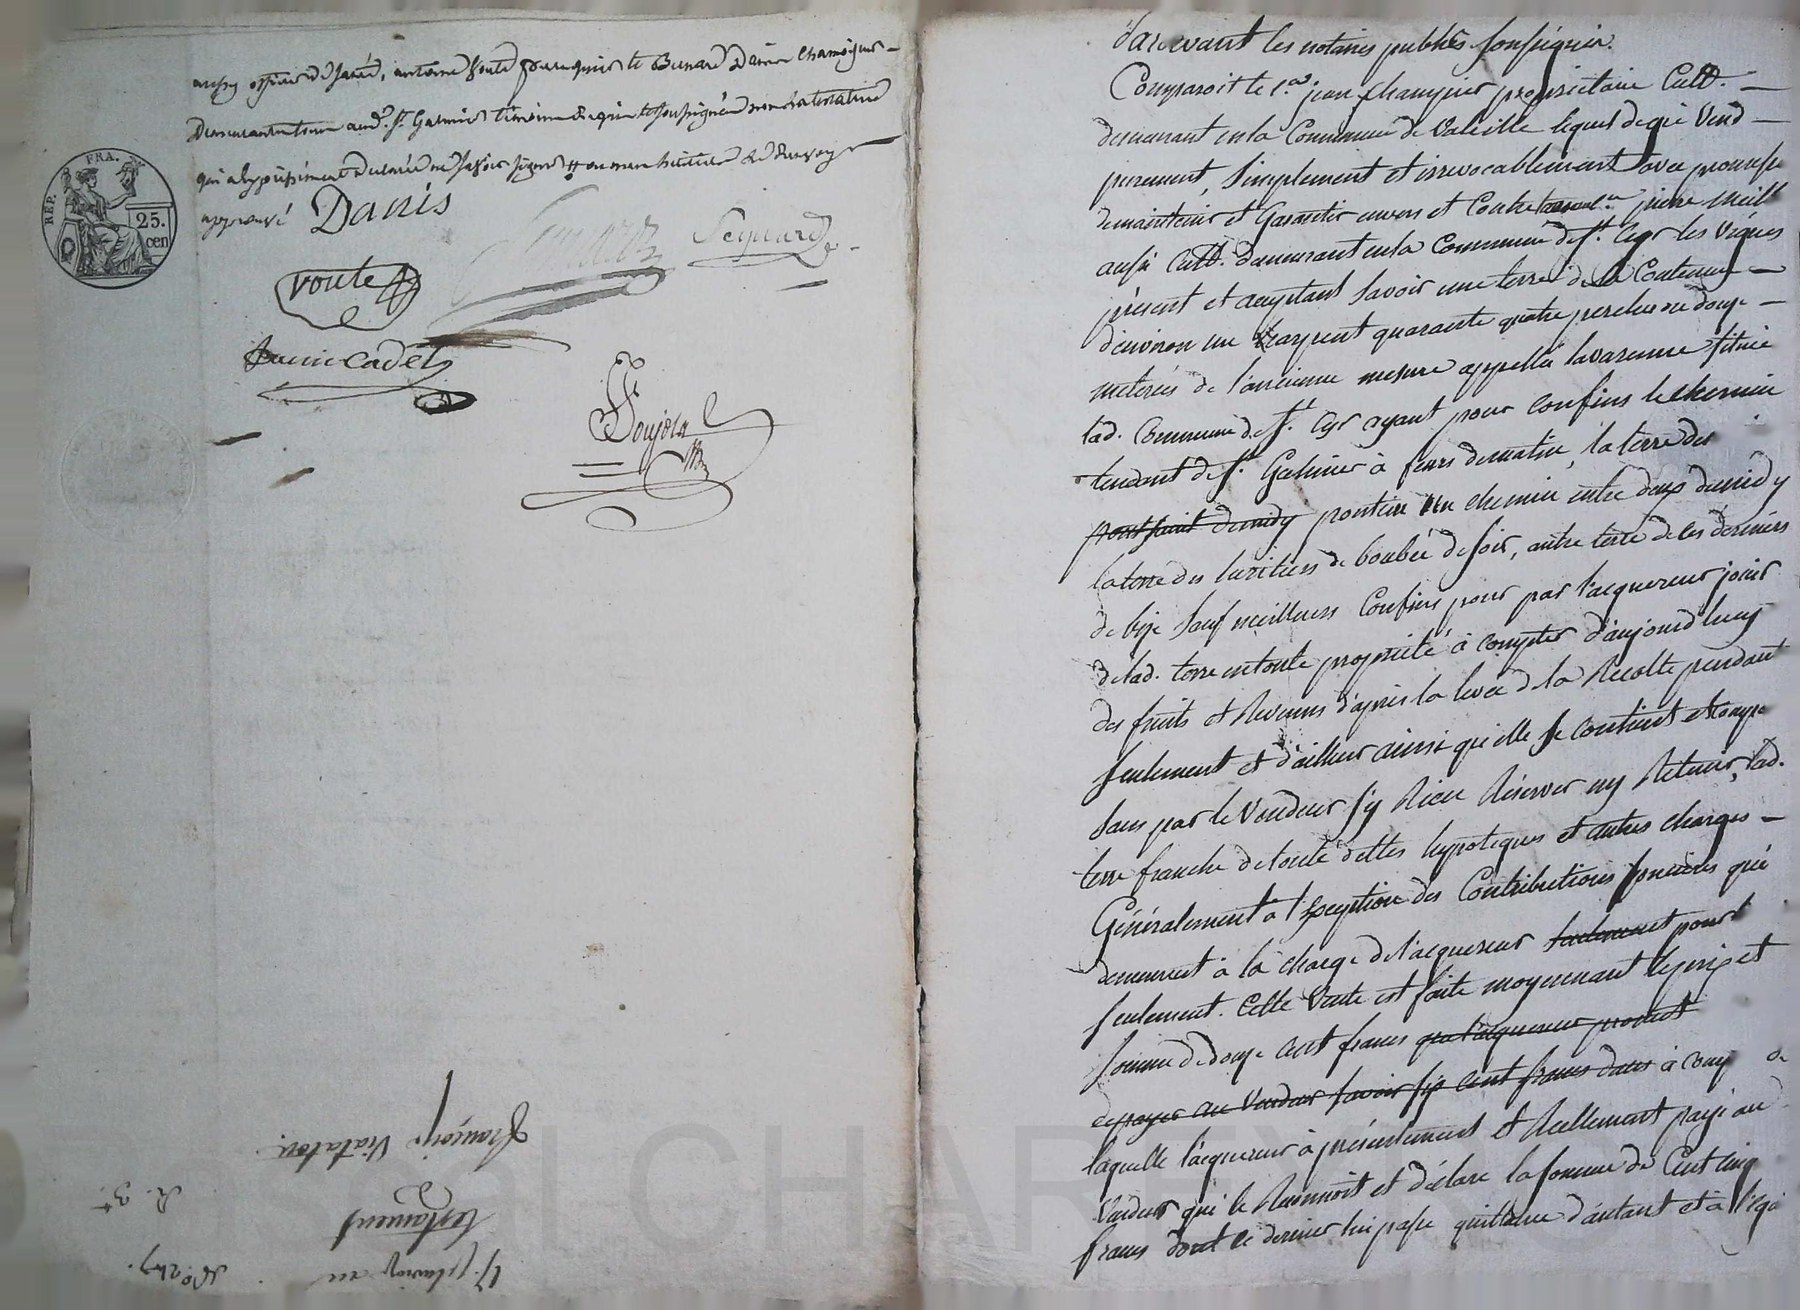 officier de santé, antoine voute perruquier et Benard Danis Chamoiseur
demeurants tous aud. St. Galmier témoins requis et soussignés non la testatrice
qui a expressément déclaré ne savoir signer
approuvé
Danis
Seguard
voute
cadet
Poujola
REP. FRA.
25.
cen
françoise Viatalon.
testament
17. pluviose an
R. 3
N° 247.
Pardevant les notaires publics soussignés.
Comparoit le c.en jean champier propriétaire Cult. —
demeurant en la Commune de Valeille lequel de gré Vend —
purement, Simplement et irrevocablement avec promesse
de maintenir et Garantir envers et Contre tous au c.en pierre
aussi Cult. demeurant en la Commune de St. Cyr les Vignes
présent et acceptant Savoir une terre de la Contenue —
d'environ un arpent quarante quatre perches ou douze —
meterées de l'ancienne mesure appellée lavarenne située
lad. Commune de St. Cyr ayant pour confins le chemin
tendant de St. Galmier à feurs de matin, la terre des
de midy un chemin entre deux de midy
la terre des heritiers de boubée de soir, autre terre de ces derniers
de bize Sauf meilleurs Confins pour par l'acquereur jouir
de lad. terre en toute propriété à compter d'aujourd'huy
des fruits et Revenus d'après la levée de la Recolte pendant
seulement et d'ailleur ainsi qu'elle Se contient et comporte
Sans par le Vendeur s'y Rien Réserver ny Retenir, lad.
terre franche de toute dettes hypoteques et autres charges —
Généralement a l'Exception des Contributions foncières qui
demeurent à la charge de l'acquereur seulement pour
seulement. Cette Vente est faite moyennant le prix et
Somme de douze cent francs que l'acquereur promet
de payer au Vendeur Savoir six cent francs dans à compte de
laquelle l'acquereur à présentement et Réellement payé au
Vendeur qui le Reconnoit et déclare la Somme de Cent cinq
francs dont ce dernier lui passe quittance d'autant et à l'éga